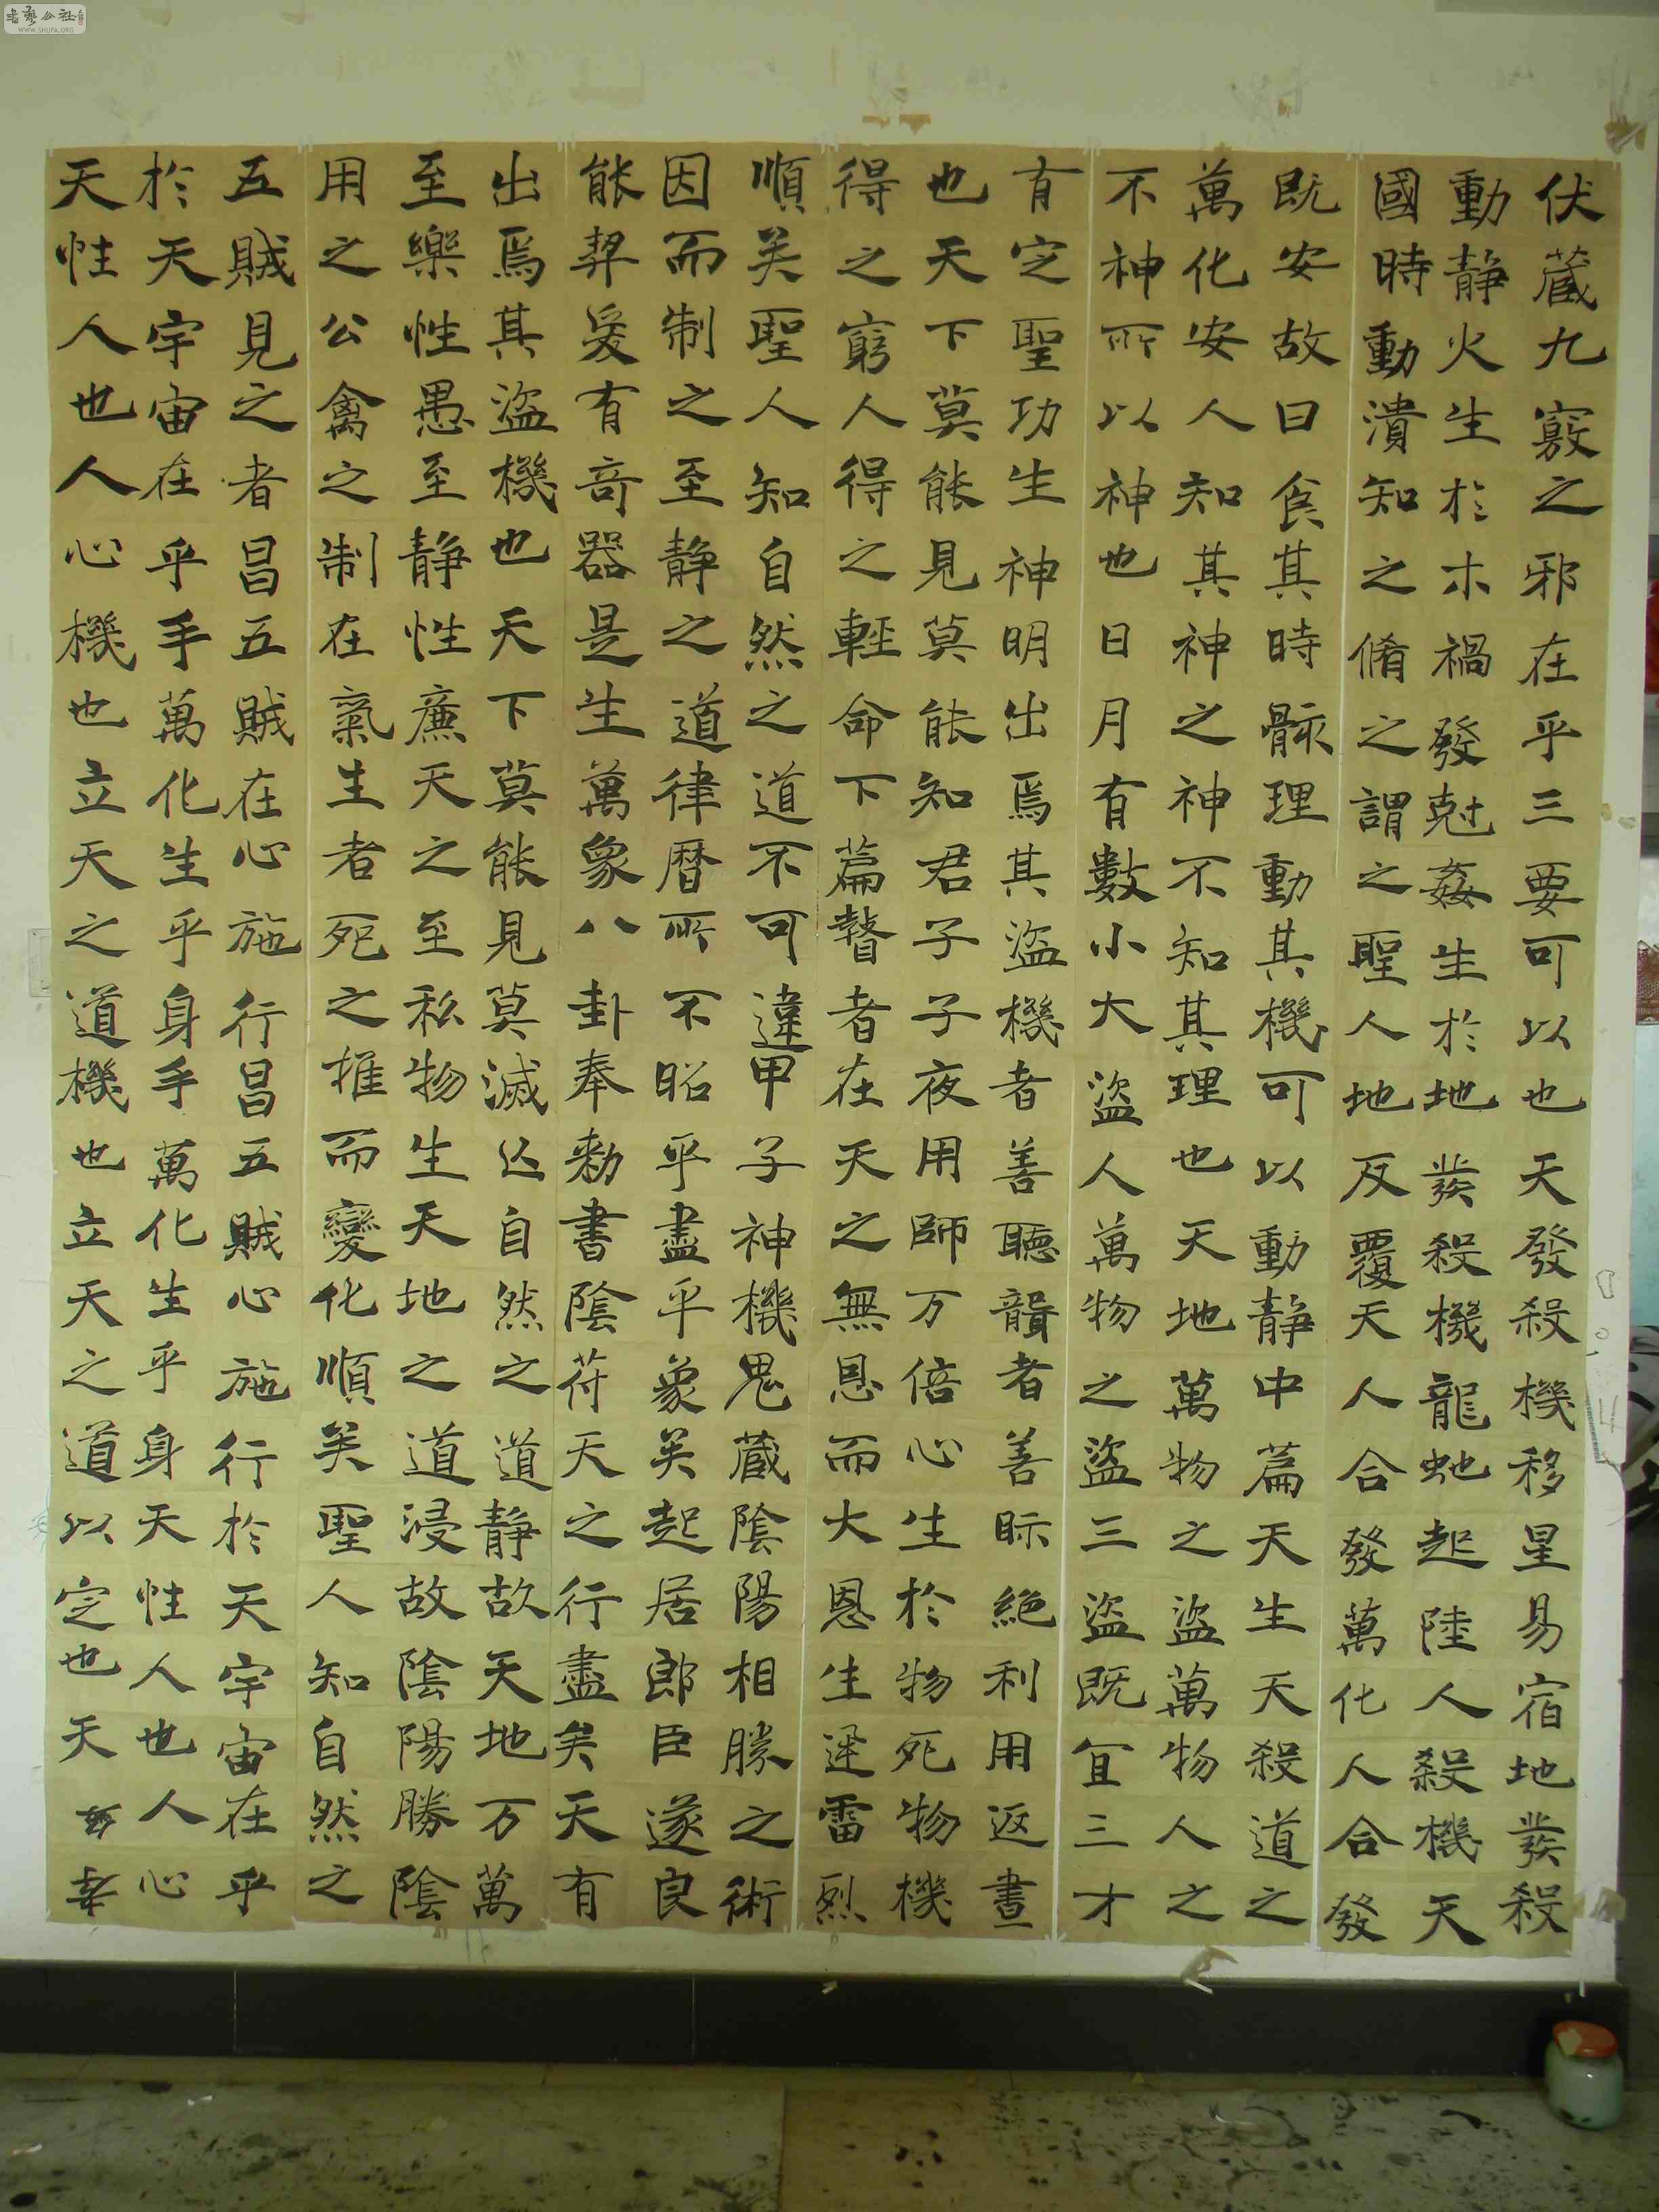 伏藏九竅之邪在乎三要可以也天發殺機移星易宿地發殺
動靜火生於木禍發尅姦生於地發殺機龍虵起陸人殺機天
國時動潰知之脩之謂之聖人地反覆天人合發萬化人合發
既安故曰食其時骸理動其機可以動靜中篇天生天殺道之
萬化安人知其神之神不知其理也天地萬物之盜萬物人之
不神所以神也日月有數小大盜人萬物之盜三盜既宜三才
有定聖功生神明出焉其盜機者善聽聾者善眎絕利用返晝
也天下莫能見莫能知君子子夜用師万倍心生於物死物機
得之窮人得之輕命下篇瞽者在天之無恩而大恩生迅雷烈
順矣聖人知自然之道不可違甲子神機鬼藏陰陽相勝之術
因而制之至靜之道律曆所不昭乎盡乎象矣起居郎臣遂良
能契爰有奇器是生萬象八卦奉勑書陰符天之行盡矣天有
出焉其盜機也天下莫能見莫滅亾自然之道靜故天地万萬
至樂性愚至靜性廉天之至私物生天地之道浸故陰陽勝陰
用之公禽之制在氣生者死之推而變化順矣聖人知自然之
五賊見之者昌五賊在心施行昌五賊心施行於天宇宙在乎
於天宇宙在乎手萬化生乎身手萬化生乎身天性人也人心
天性人也人心機也立天之道機也立天之道以定也天
書藝公社
WWW.SHUFA.ORG